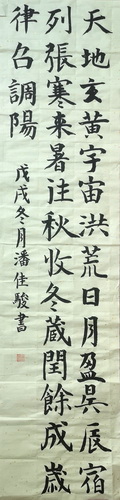 天地玄黃宇宙洪荒日月盈昃辰宿
列張寒来暑往秋收冬蔵閏餘成歲
律呂調陽
戊戌冬月潘佳駿書